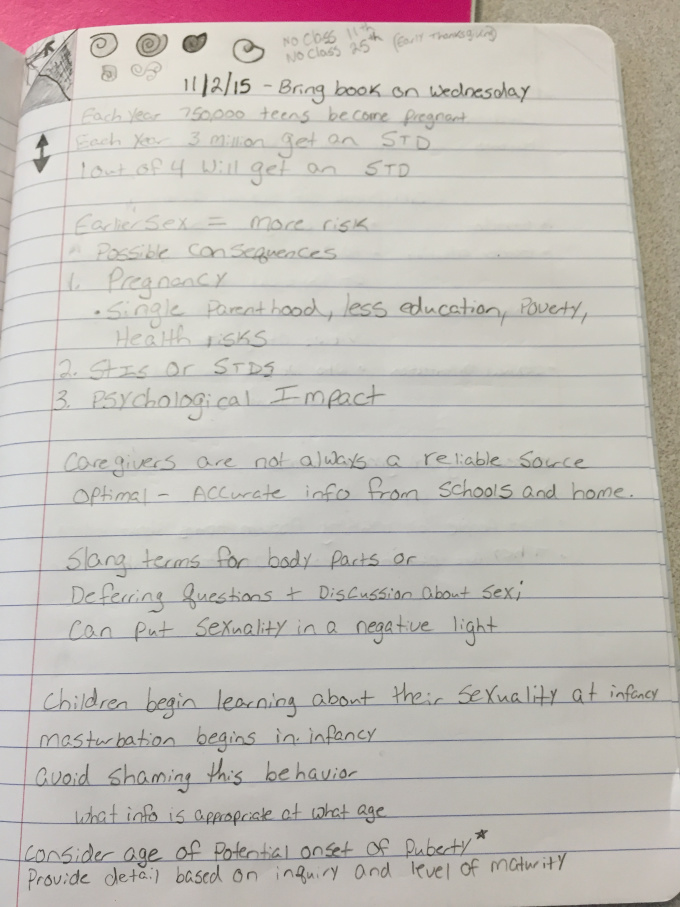 No Class 11th (Early Thanksgiving)
No Class 25th
11/2/15 - Bring book on Wednesday
Each year 750,000 teens become pregnant
Each year 3 million get an STD
1 out of 4 will get an STD
Earlier sex = more risk
Possible consequences
1. Pregnancy
• Single parenthood, less education, Poverty,
Health risks
2. STIs or STDs
3. Psychological Impact
Caregivers are not always a reliable source
Optimal - Accurate info from schools and home.
Slang terms for body parts or
Deferring Questions + Discussion about sex;
Can put sexuality in a negative light
Children begin learning about their sexuality at infancy
masturbation begins in infancy
avoid shaming this behavior
What info is appropriate at what age
Consider age of Potential onset of Puberty*
Provide detail based on inquiry and level of maturity